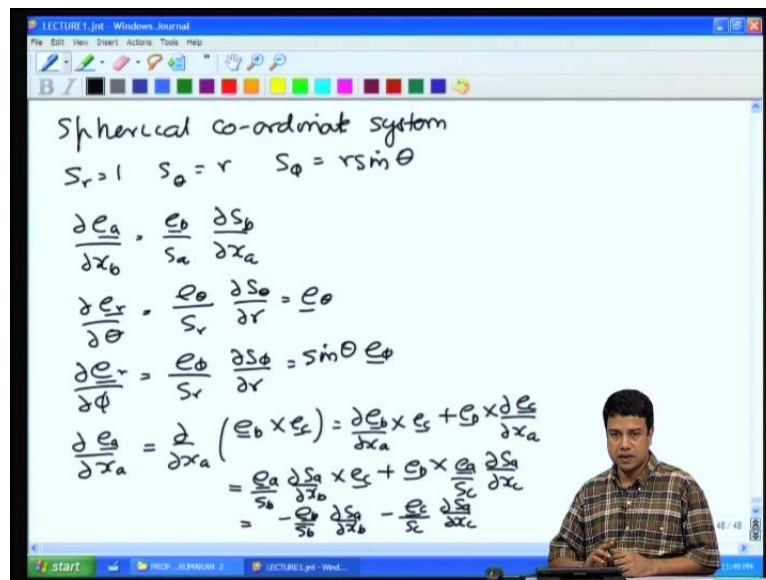 LECTURE1.jnt - Windows Journal
File Edit View Insert Actions Tools Help
B I
Spherical co-ordinate system
S_r = 1 S_θ = r S_φ = r sin θ
∂e_a/∂x_b = e_b/S_a ∂S_b/∂x_a
∂e_r/∂θ = e_θ/S_r ∂S_θ/∂r = e_θ
∂e_r/∂φ = e_φ/S_r ∂S_φ/∂r = sin θ e_φ
∂e_a/∂x_a = ∂/∂x_a (e_b × e_c) = ∂e_b/∂x_a × e_c + e_b × ∂e_c/∂x_a
= e_a/S_b ∂S_a/∂x_b × e_c + e_b × e_a/S_c ∂S_a/∂x_c
= -e_b/S_b ∂S_a/∂x_b - e_c/S_c ∂S_a/∂x_c
48 / 48
start LECTURE1.jnt - Wind...